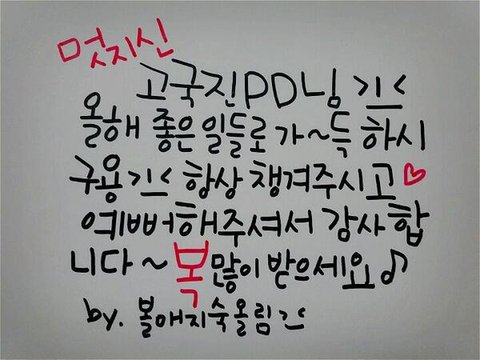 멋지신
고국진PD님 기즈
올해 좋은일들로 가~득 하시
구용 기즈 항상 챙겨주시고♡
예뻐해주셔서 감사합
니다~ 복 많이 받으세요♪
by. 볼애지숙올림